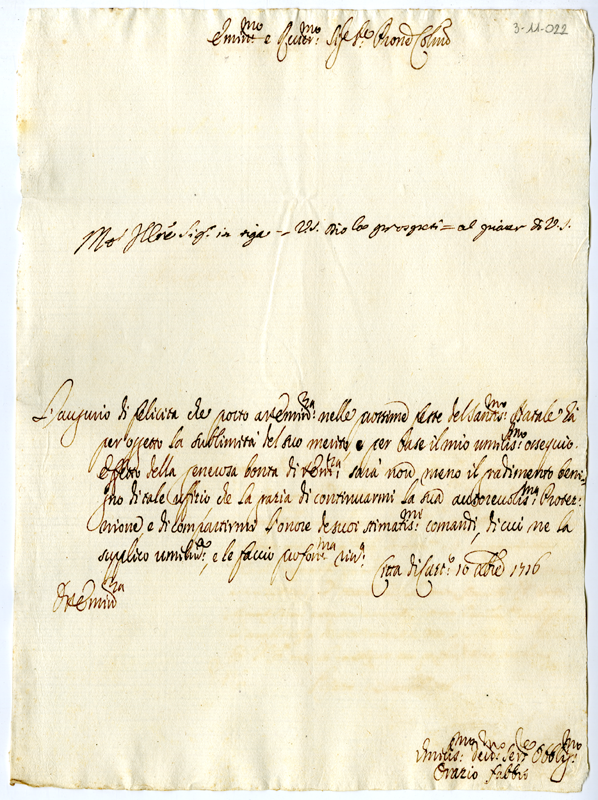 3-11-022
Emin.mo e Rever.mo Sig.e P.ne Colmo
Mol. Ill.re Sig.r in riga = V.S. Dio la prosperi = al piacer di V.S.
L'augurio di felicità che porto a V. Emin.za nelle prossime feste del Santis.mo Natale hà
per oggetto la sublimità del suo merito, e per base il mio umilis.mo ossequio.
Effetto della generosa bontà di V. Em.za sarà non meno il gradimento beni-
gno di tale uffitio che la grazia di continuarmi la sua autorevolis.ma Protet-
tione, e di compartirmi l'onore de suoi stimatis.mi comandi, di cui ne la
supplico umilm.e, e le faccio prof.ma riv.a
Città di Cast.o 16 Xbre 1716
Di V. Emin.za
Umilis.mo Dev.mo Ser.e Obblig.mo
Orazio Fabbri